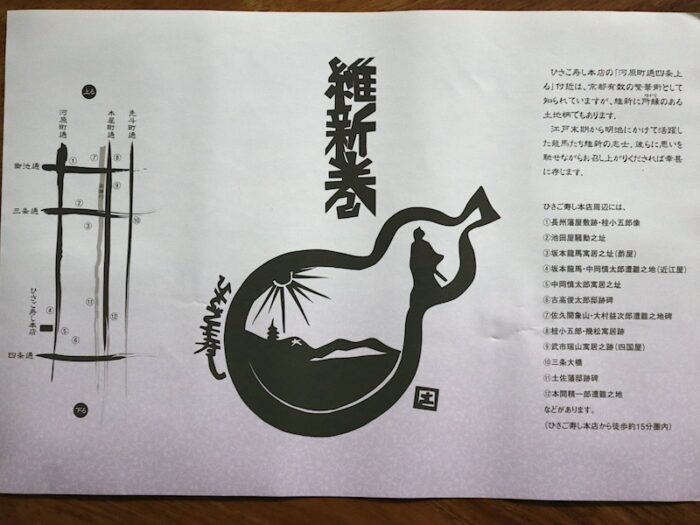 維新巻
ひさご寿し
上る
河原町通
木屋町通
先斗町通
御池通
三条通
ひさご寿し本店
四条通
下る
① ⑦ ⑧
⑨
② ⑩
③
⑪
④ ⑫
⑤
⑥
ひさご寿し本店の「河原町通四条上
る」付近は、京都有数の繁華街として
知られていますが、維新に所縁のある
土地柄でもあります。
江戸末期から明治にかけて活躍し
た龍馬たち維新の志士。彼らに思いを
馳せながらお召し上がりくだされば幸甚
に存じます。
ひさご寿し本店周辺には、
①長州藩屋敷跡・桂小五郎像
②池田屋騒動之址
③坂本龍馬寓居之址(酢屋)
④坂本龍馬・中岡慎太郎遭難之地(近江屋)
⑤中岡慎太郎寓居之址
⑥古高俊太郎邸跡碑
⑦佐久間象山・大村益次郎遭難之地碑
⑧桂小五郎・幾松寓居跡
⑨武市瑞山寓居之跡(四国屋)
⑩三条大橋
⑪土佐藩邸跡碑
⑫本間精一郎遭難之地
などがあります。
(ひさご寿し本店から徒歩約15分圏内)